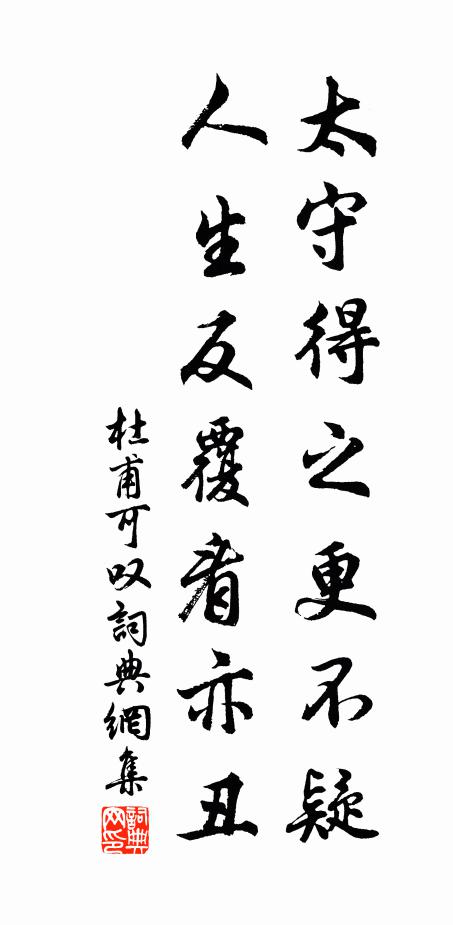 太守得之更不疑
人生反覆看亦丑
杜甫可叹詞典網集
詞典网印